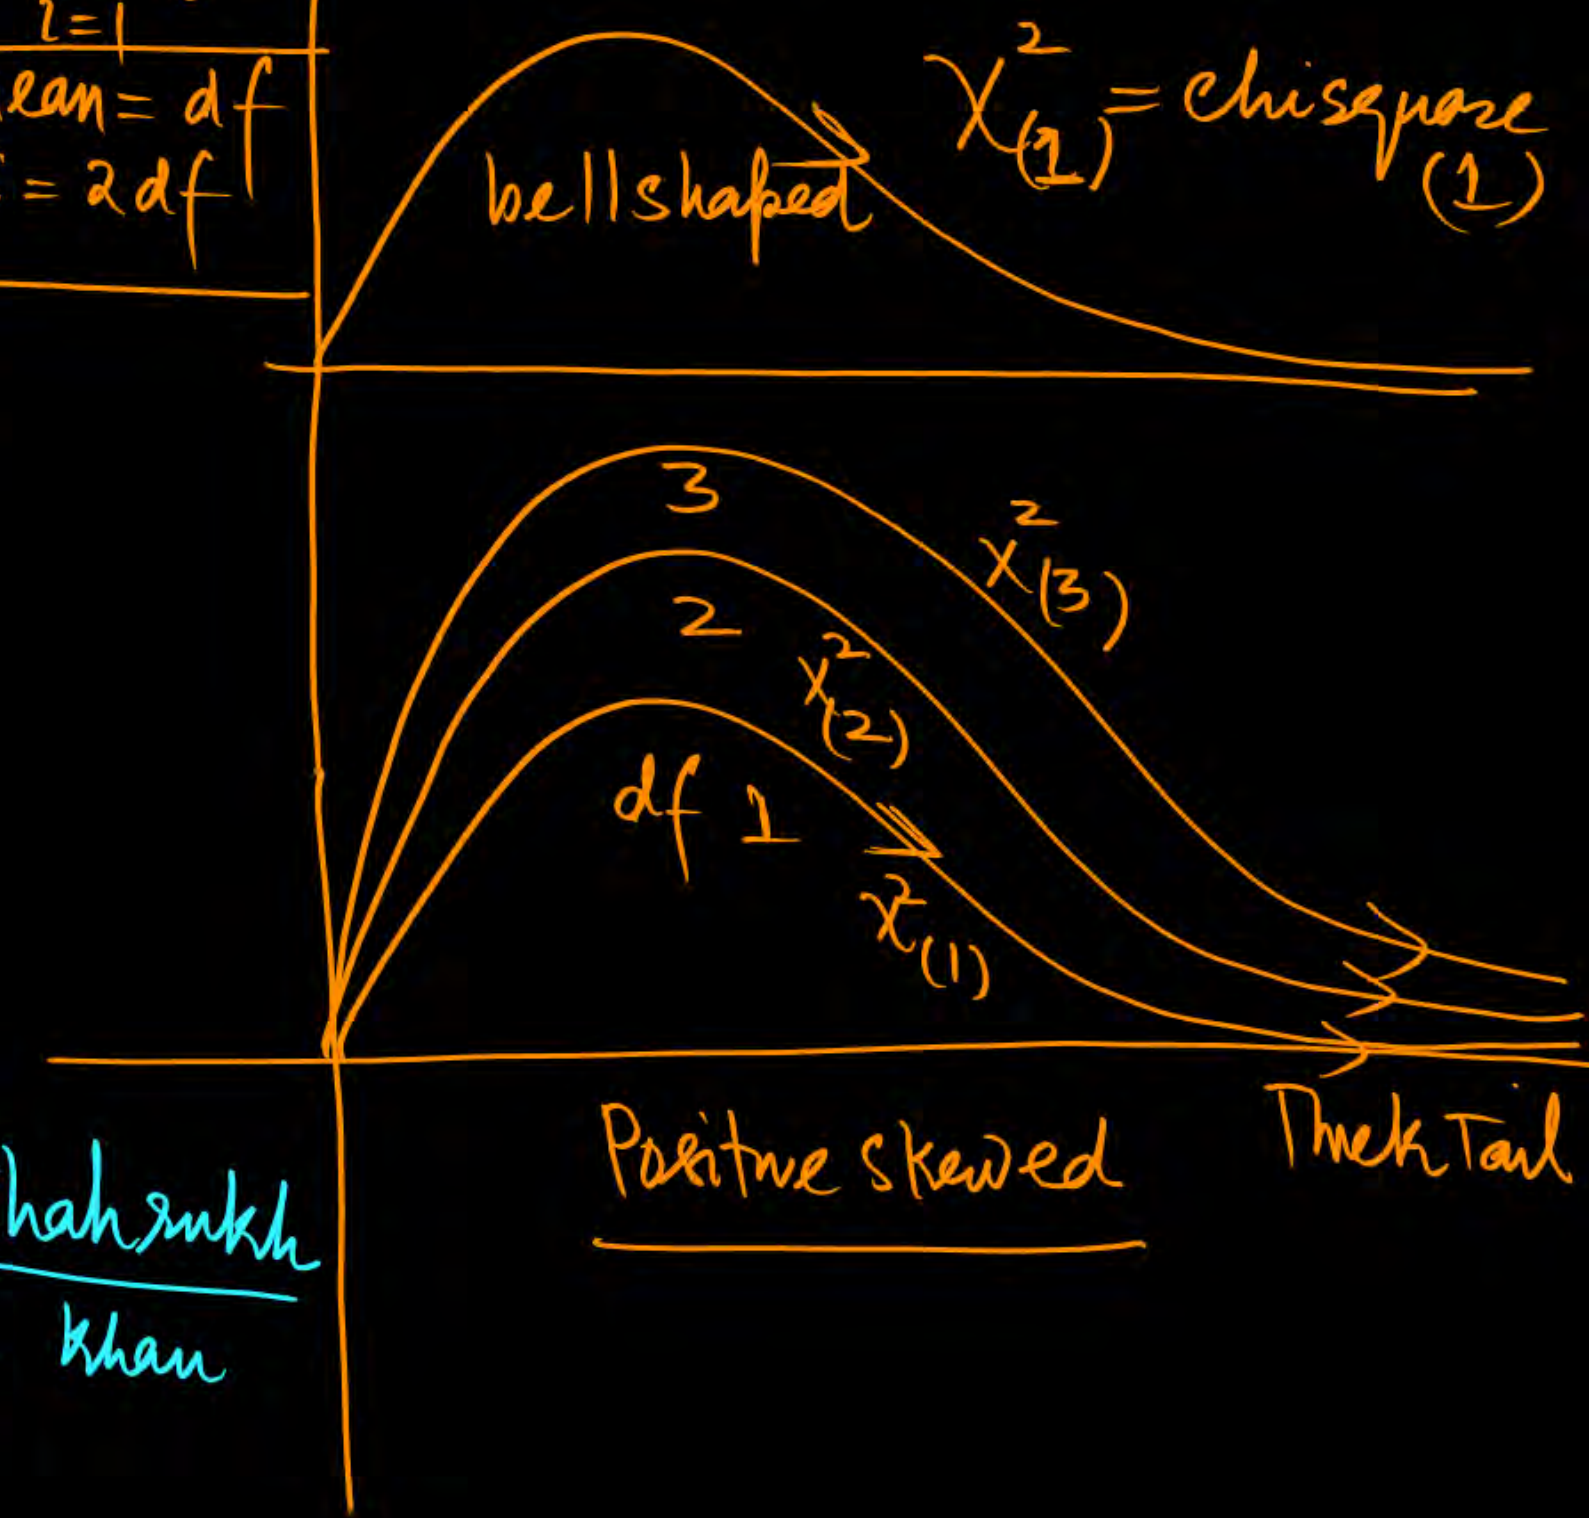 i=1
ean = df
= 2df
bell shaped
χ²(1) = chisquare (1)
3
χ²(3)
2
χ²(2)
df 1
χ²(1)
Positive skewed
Thick Tail
hahrukh
Khan